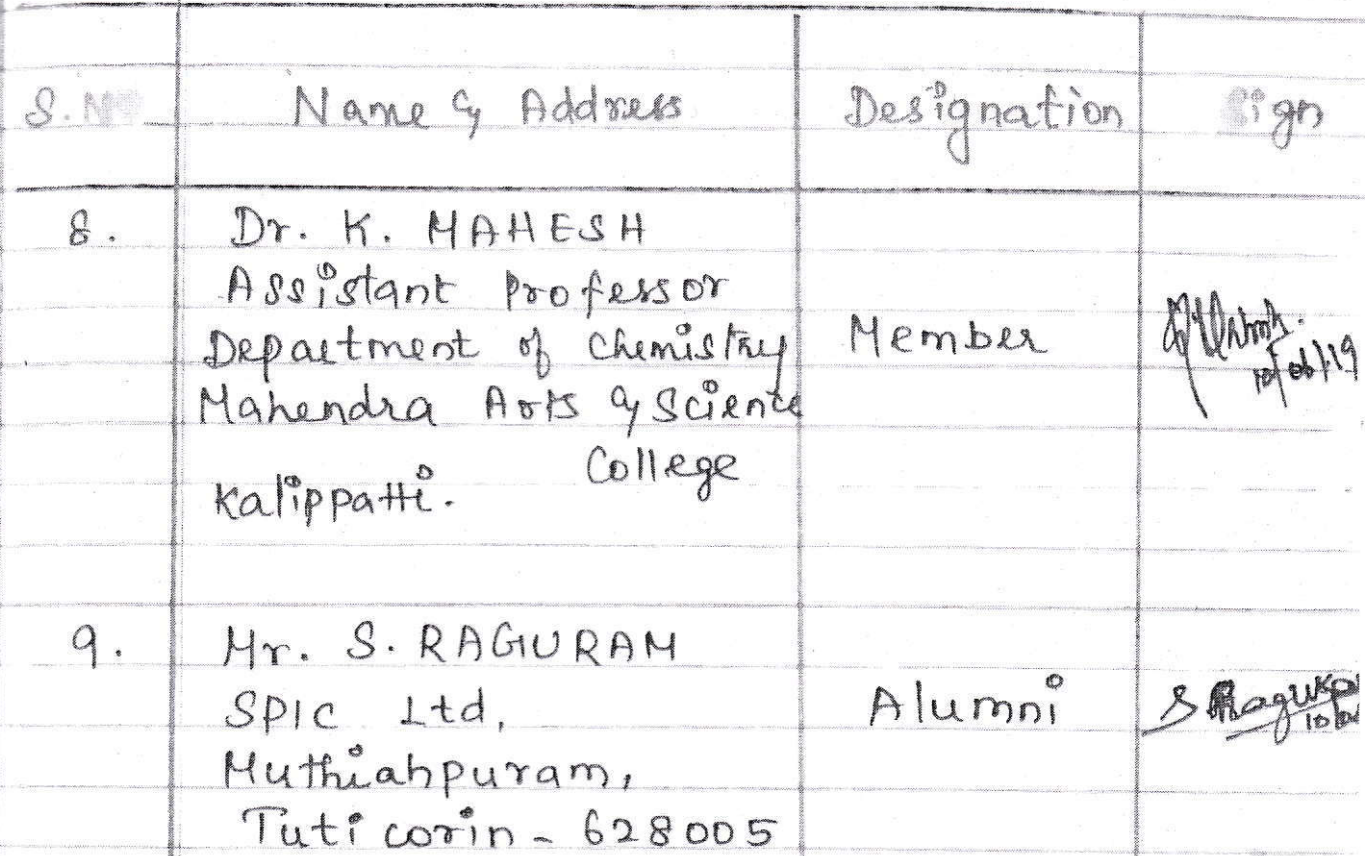 S.No Name & Address Designation Sign
8. Dr. K. MAHESH
Assistant Professor
Department of Chemistry Member
Mahendra Arts & Science
College
Kalippatti.
10/06/19
9. Mr. S. RAGURAM
SPIC Ltd, Alumni
Muthiahpuram,
Tuticorin - 628005